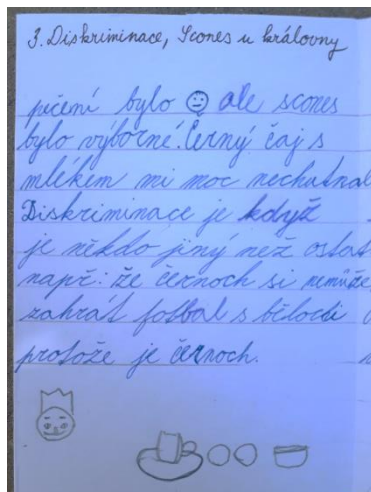 3. Diskriminace, Scones u královny
pičení bylo ☺ ale scones
bylo výborné. Černý čaj s
mlékem mi moc nechutnal
Diskriminace je když
je někdo jiný než ostat
např: že černoch si nemůže
zahrát fotbal s bělochi
protože je černoch.